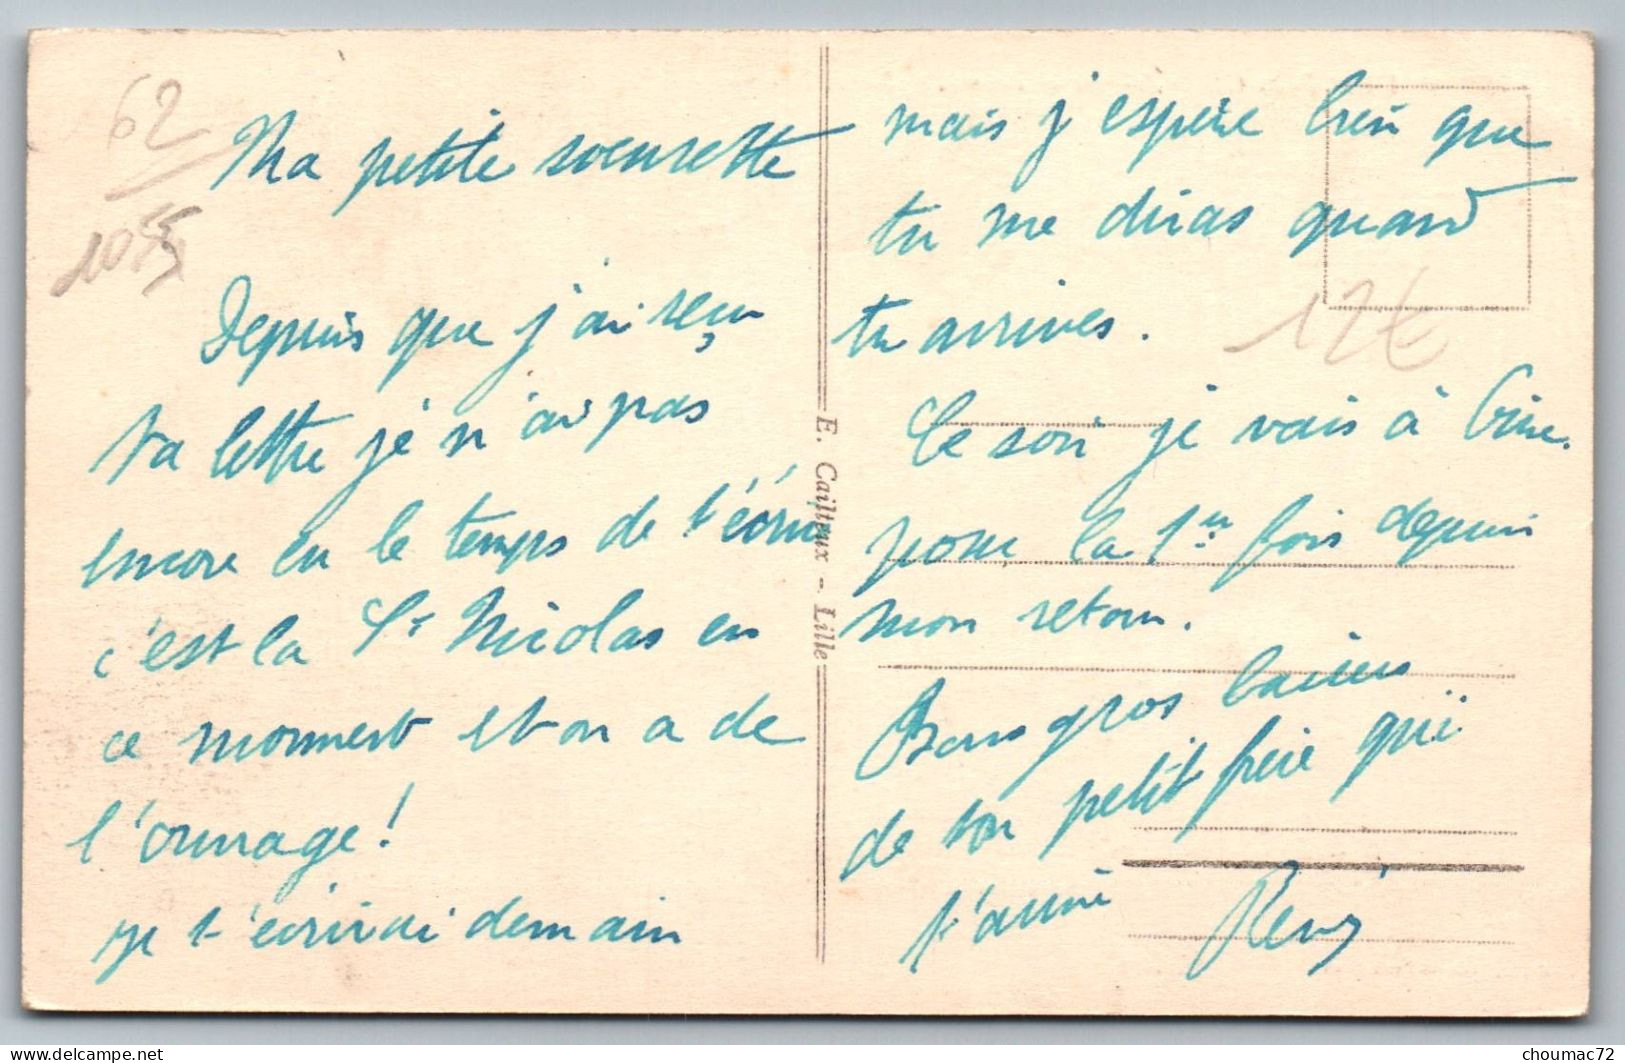 62
Ma petite soeurette
Depuis que j'ai reçu
ta lettre je n'ai pas
encore eu le temps de t'écrire
c'est la St Nicolas en
ce moment et on a de
l'ouvrage!
je t'écrirai demain
mais j'espère bien que
tu me diras quand
tu arrives.
12€
Ce soir je vais à
pour la 1re fois depuis
mon retour.
Bons gros baisers
de ton petit frère qui
t'aime Rémy
E. Cailteux - Lille
choumac72